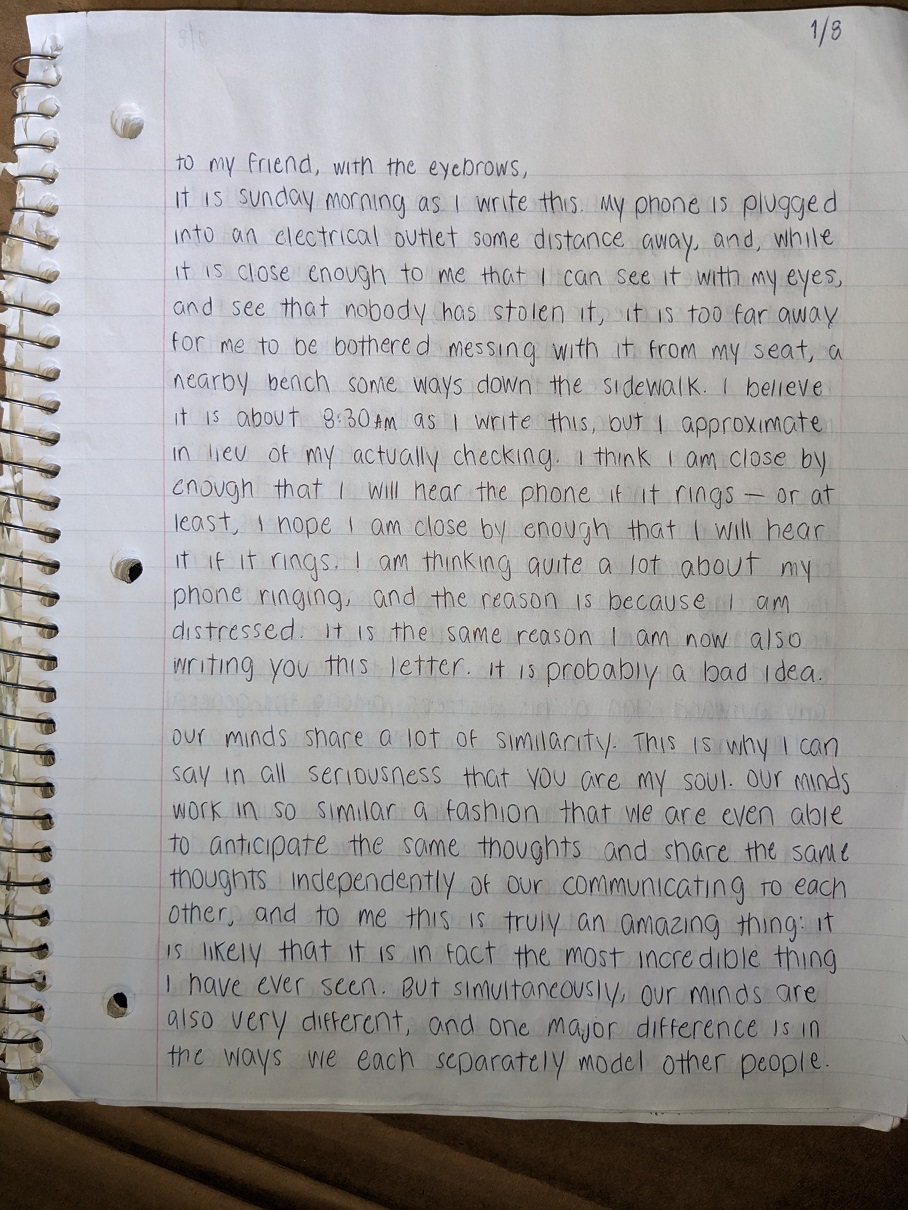 1/8
to my friend, with the eyebrows,
it is sunday morning as I write this. My phone is plugged
into an electrical outlet some distance away, and, while
it is close enough to me that I can see it with my eyes,
and see that nobody has stolen it, it is too far away
for me to be bothered messing with it from my seat, a
nearby bench some ways down the sidewalk. I believe
it is about 8:30AM as I write this, but I approximate
in lieu of my actually checking. I think I am close by
enough that I will hear the phone if it rings — or at
least, I hope I am close by enough that I will hear
it if it rings. I am thinking quite a lot about my
phone ringing, and the reason is because I am
distressed. it is the same reason I am now also
writing you this letter. it is probably a bad idea.
our minds share a lot of similarity. This is why I can
say in all seriousness that you are my soul. our minds
work in so similar a fashion that we are even able
to anticipate the same thoughts and share the same
thoughts independently of our communicating to each
other, and to me this is truly an amazing thing: it
is likely that it is in fact the most incredible thing
I have ever seen. But simultaneously, our minds are
also very different, and one major difference is in
the ways we each separately model other people.